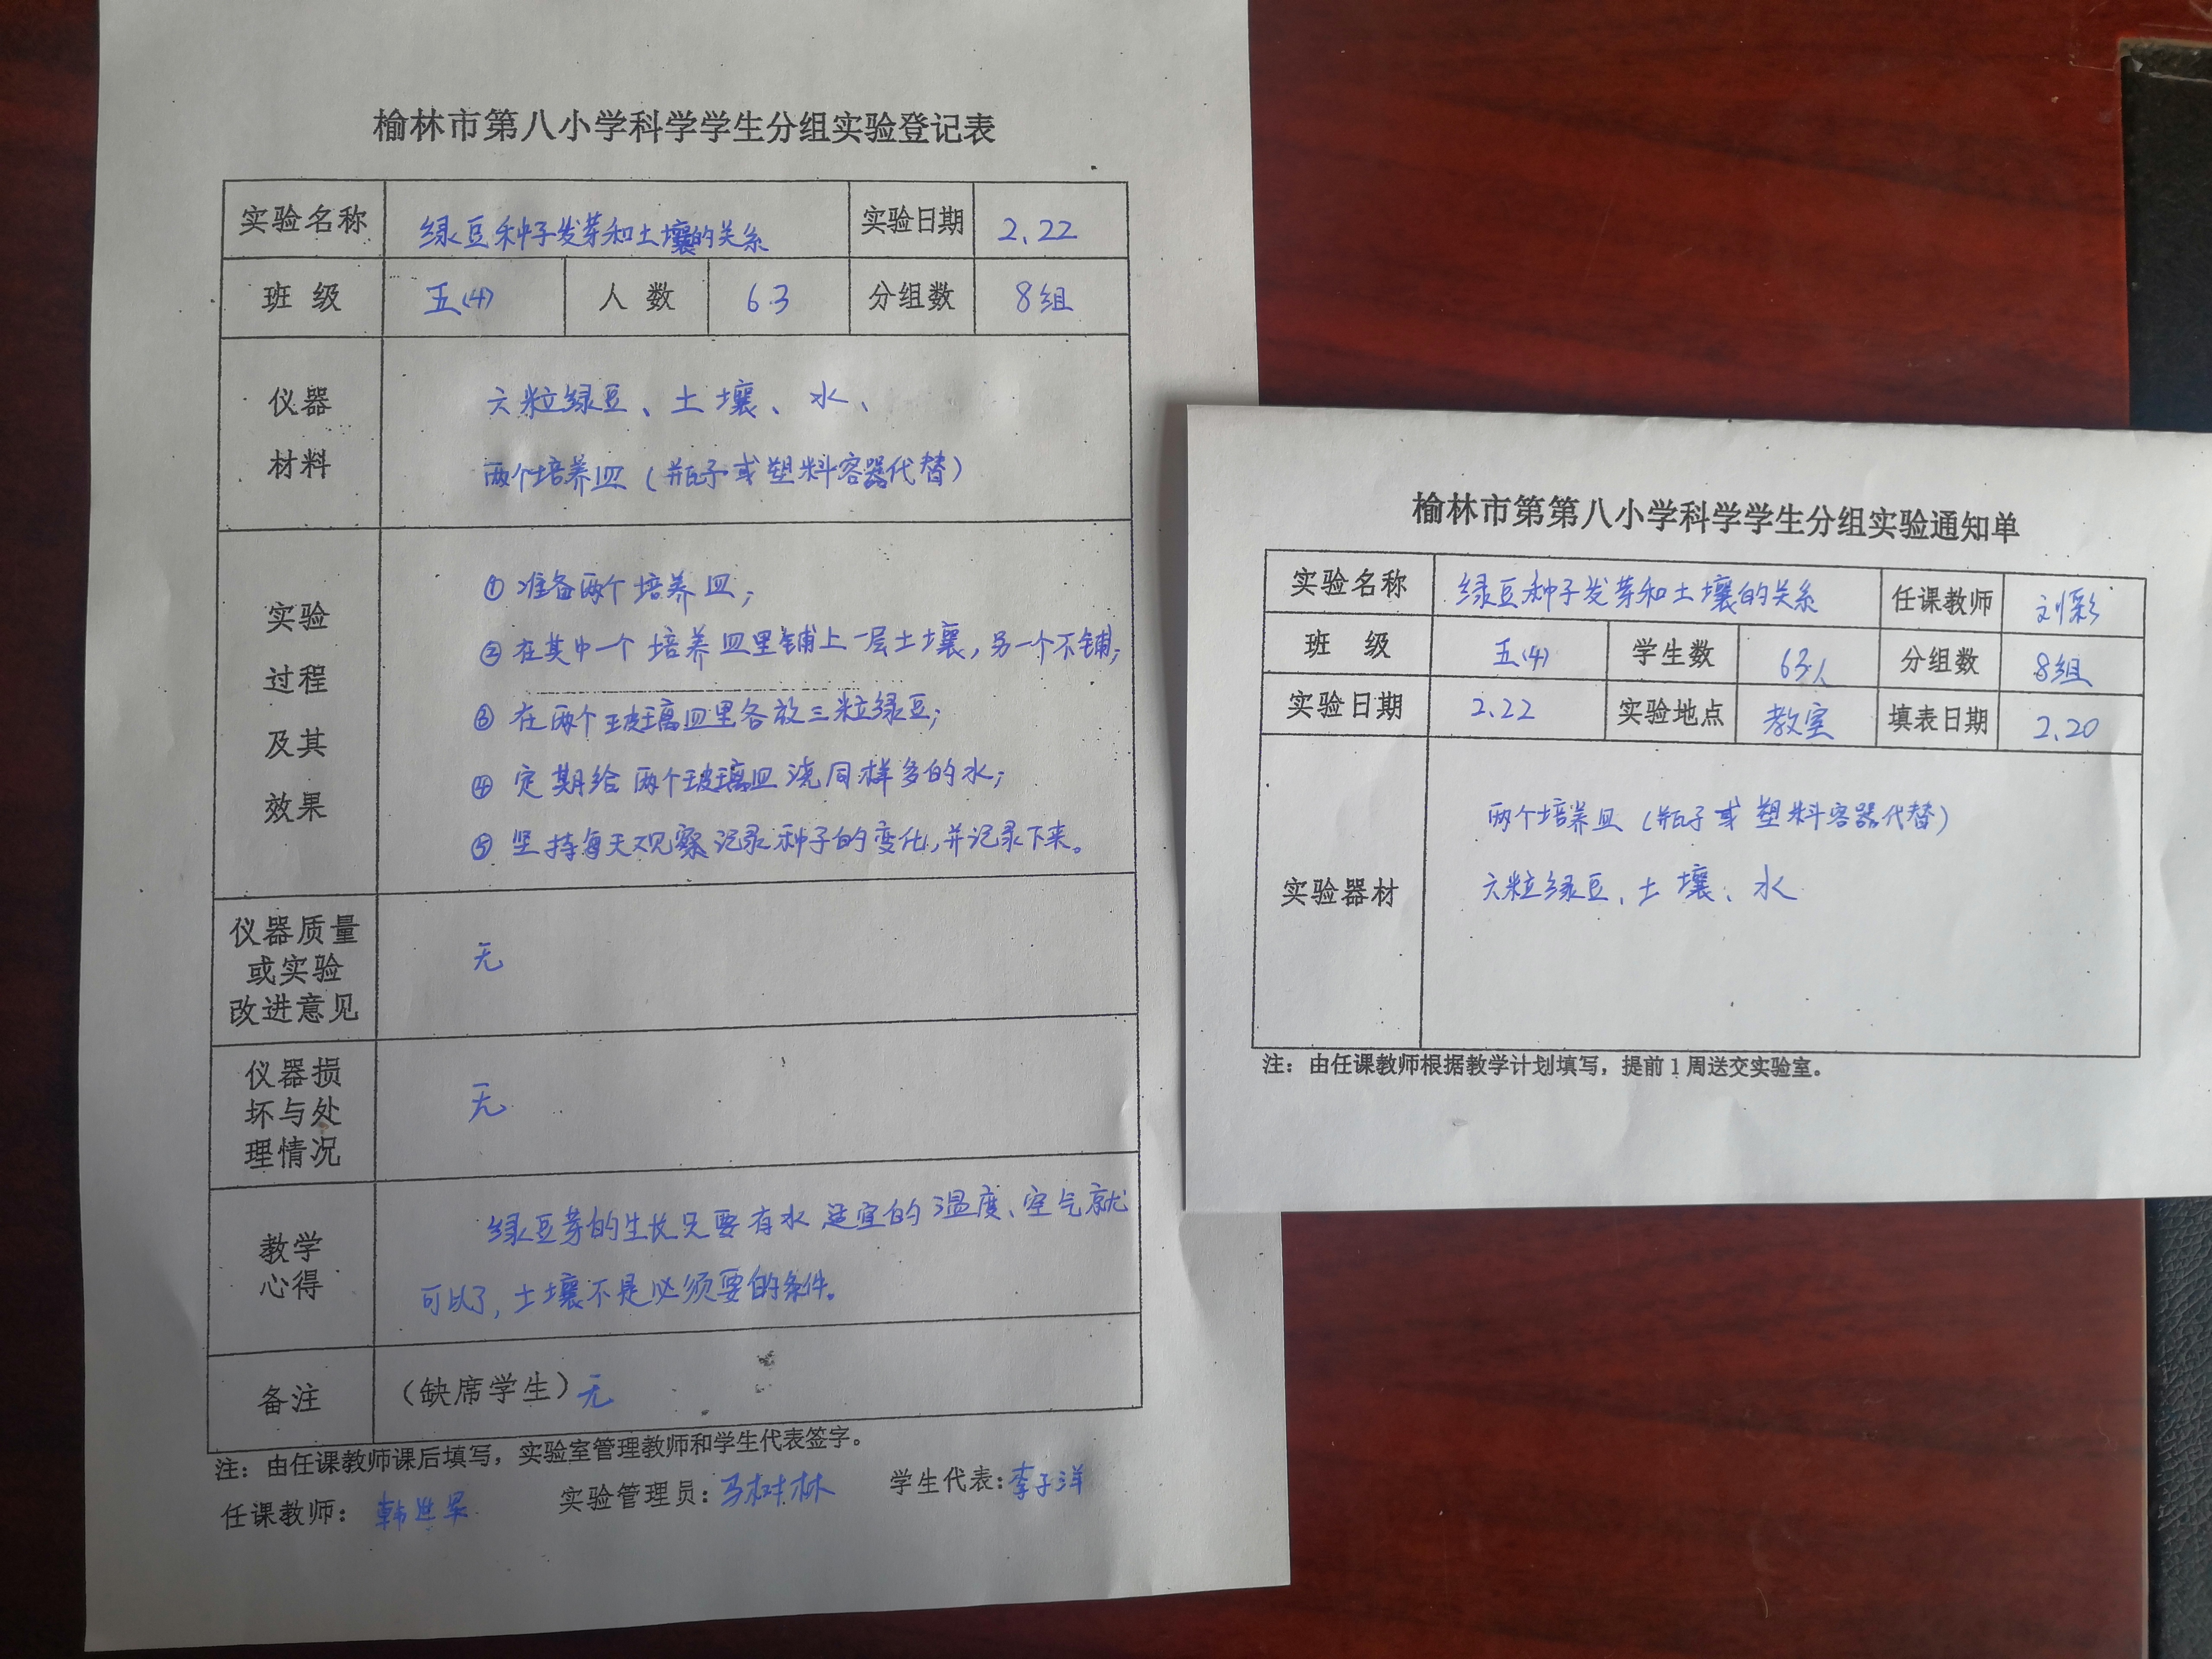 榆林市第八小学科学学生分组实验登记表
实验名称 绿豆种子发芽和土壤的关系 实验日期 2.22
班 级 五(4) 人 数 63 分组数 8组
仪器
材料
六粒绿豆、土壤、水、
两个培养皿(瓶子或塑料容器代替)
实验
过程
及其
效果
① 准备两个培养皿;
② 在其中一个培养皿里铺上一层土壤,另一个不铺;
③ 在两个玻璃皿里各放三粒绿豆;
④ 定期给两个玻璃皿浇同样多的水;
⑤ 坚持每天观察记录种子的变化,并记录下来。
仪器质量
或实验
改进意见
无
仪器损
坏与处
理情况
无
教学
心得
绿豆芽的生长只要有水 适宜的温度、空气就
可以了,土壤不是必须要的条件。
备注 (缺席学生)无
注:由任课教师课后填写,实验室管理教师和学生代表签字。
任课教师: 韩 实验管理员:马树林 学生代表:李子洋
榆林市第第八小学科学学生分组实验通知单
实验名称 绿豆种子发芽和土壤的关系 任课教师 刘彩
班 级 五(4) 学生数 63人 分组数 8组
实验日期 2.22 实验地点 教室 填表日期 2.20
实验器材
两个培养皿(瓶子或塑料容器代替)
六粒绿豆、土壤、水
注:由任课教师根据教学计划填写,提前1周送交实验室。